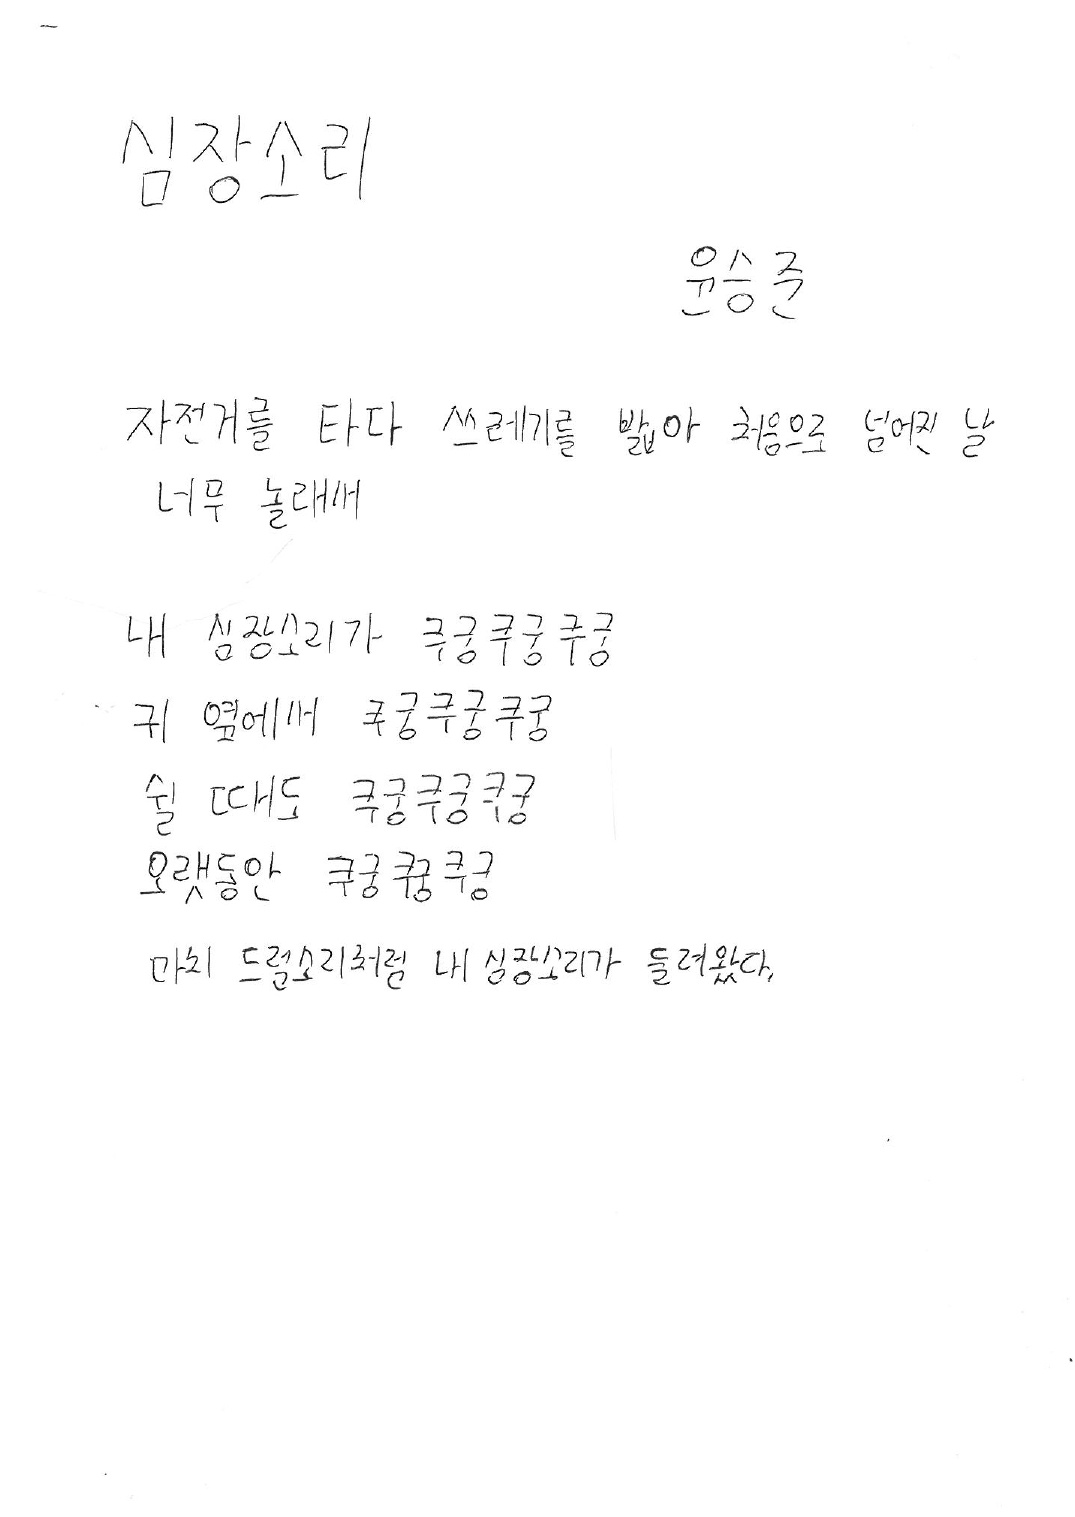 심장소리
윤승준
자전거를 타다 쓰레기를 밟아 처음으로 넘어진 날
너무 놀래써
내 심장소리가 쿠궁쿠궁쿠궁
귀 옆에써 쿠궁쿠궁쿠궁
쉴 때도 쿠궁쿠궁쿠궁
오랫동안 쿠궁쿠궁쿠궁
마치 드럼소리처럼 내 심장소리가 들려왔다.